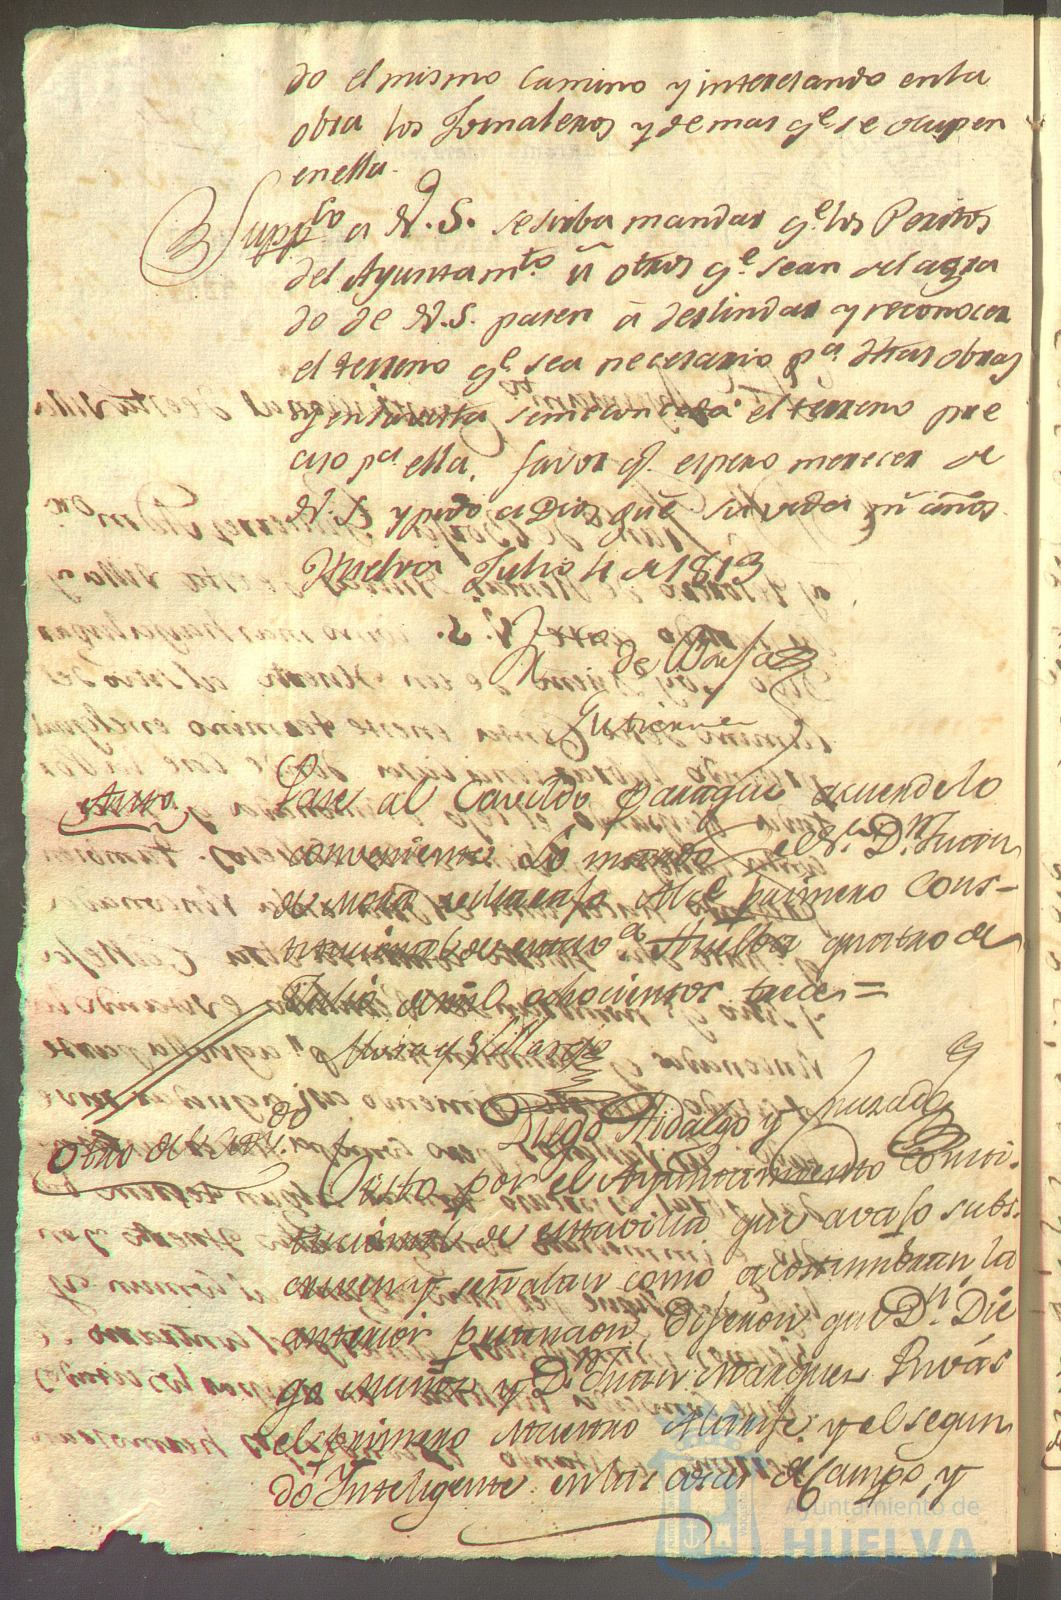 do el mismo camino y interesando en la
obra los Jornaleros y demas qe. se ocupen
en ella.
Suppco. a V. S. se sirba mandar qe. los Peritos
del Ayuntamto. ù otros qe. sean del agra
do de V. S. pasen à deslindar y reconocer
el terreno qe. sea necesario pa. dhas obras
y en su vista se me conceda el terreno pre
ciso pa. ella, favor q. espero merecer de
V. S. y pido a Dios gue. su vida ms. años.
Huelva Julio 4 de 1813
de
Gutierrez
Auto
Pase al Cavildo para que acuerde lo
conveniente Lo mando el Sr. Dn. Juan
de mora Alce. primero Cons-
titucional de esta va. de Huelba quatro de
Julio de mil ochocientos trece =
Mora y Villarejo
Diego Hidalgo y Quezada
Otro del Cavdo.
Visto por el Ayuntamiento Consti-
tucional de esta villa que avaxo subs-
criven y señalan como acostumbran, la
anterior pretencion: Dixeron que Dn. Die
go Muñoz y Dn. Juan Marquez Rivas
el primero Maestro Alarife, y el segun
do Inteligente en las cosas de Campo, y
Ayuntamiento de
HUELVA